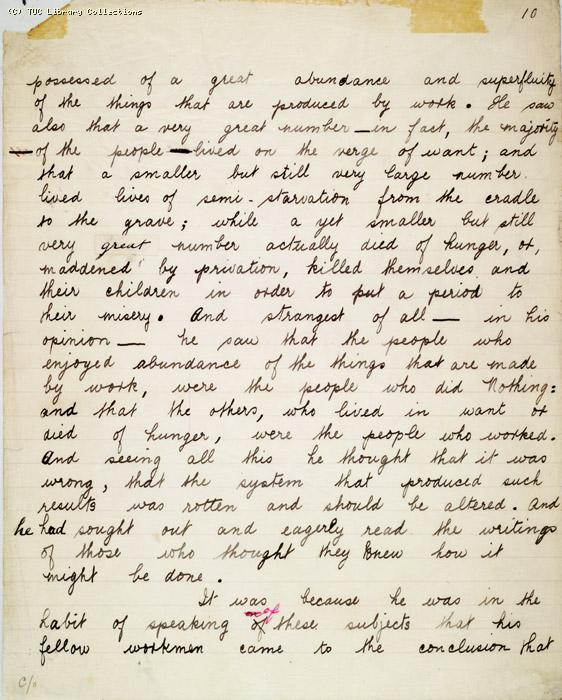 (C) TUC Library Collections
10
possessed of a great abundance and superfluity
of the things that are produced by work. He saw
also that a very great number — in fact, the majority
— of the people — lived on the verge of want; and
that a smaller but still very large number
lived lives of semi-starvation from the cradle
to the grave; while a yet smaller but still
very great number actually died of hunger, or,
maddened by privation, killed themselves and
their children in order to put a period to
their misery. And strangest of all — in his
opinion — he saw that the people who
enjoyed abundance of the things that are made
by work, were the people who did Nothing:
and that the others, who lived in want or
died of hunger, were the people who worked.
And seeing all this he thought that it was
wrong, that the system that produced such
results was rotten and should be altered. And
he had sought out and eagerly read the writings
of those who thought they knew how it
might be done.
It was because he was in the
habit of speaking of these subjects that his
fellow workmen came to the conclusion that
c/o